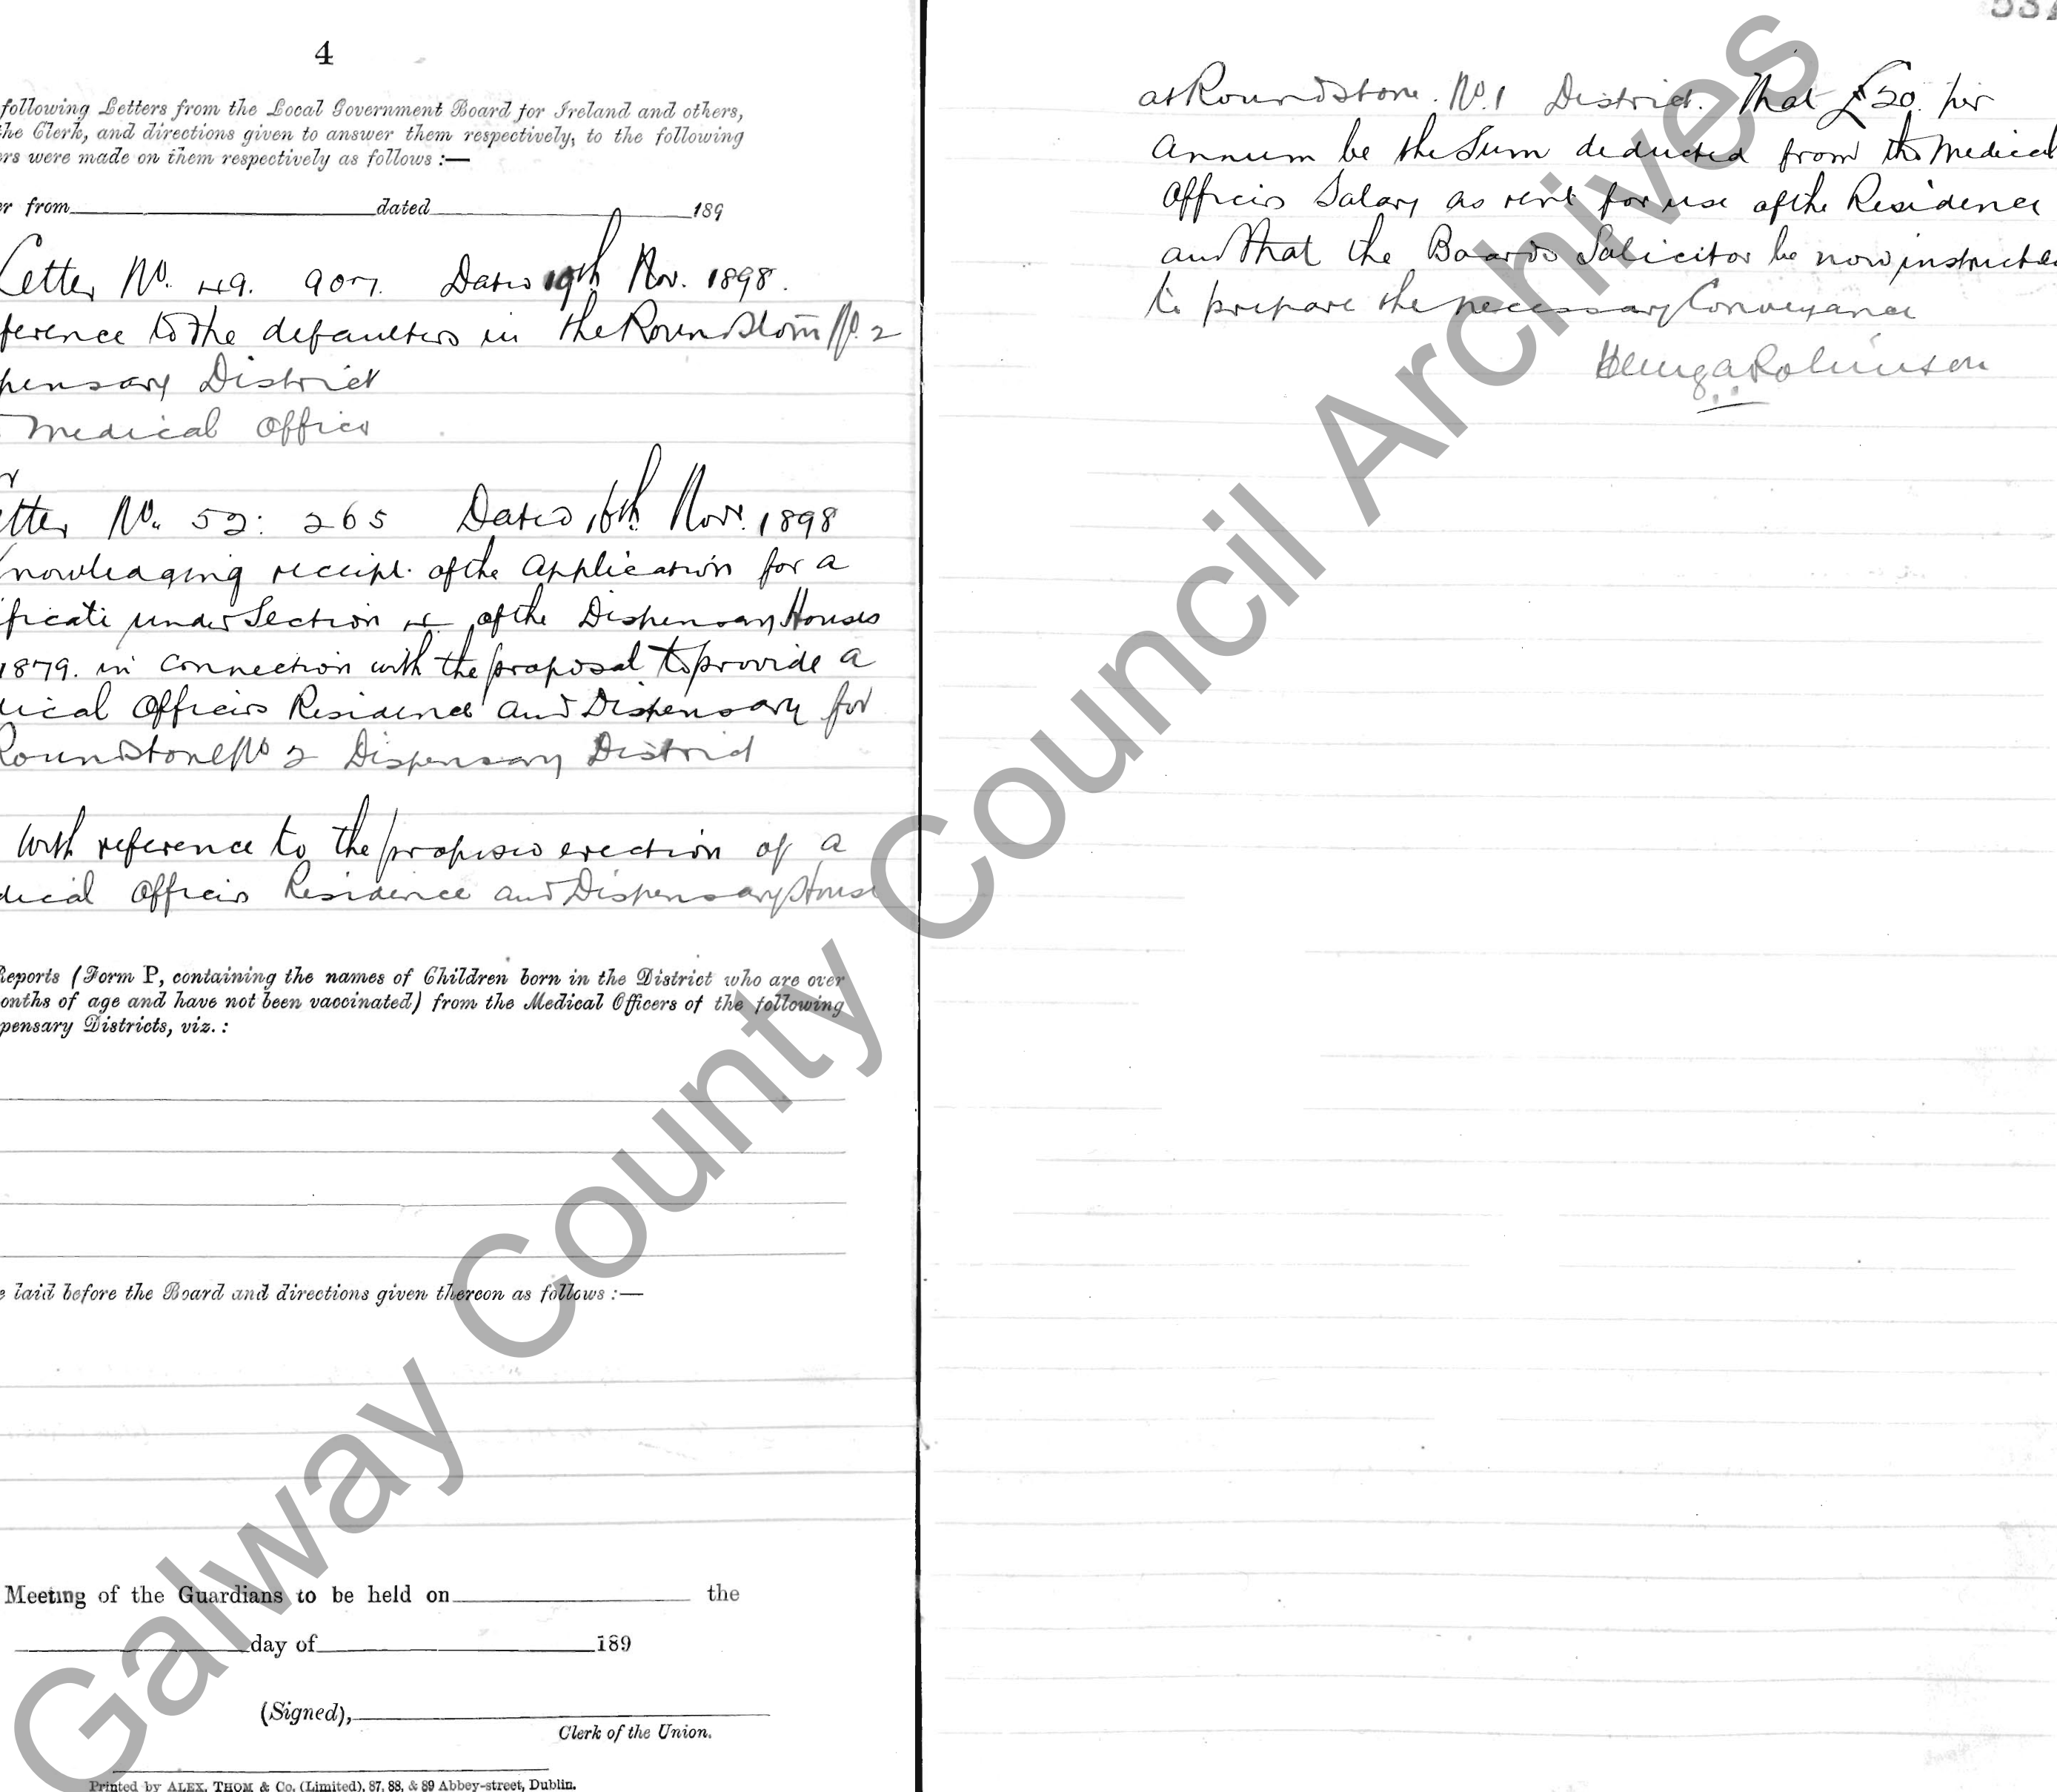 4
following Letters from the Local Government Board for Ireland and others,
the Clerk, and directions given to answer them respectively, to the following
ers were made on them respectively as follows :—
er from dated 189
Letter No. 49. 907. Dated 19th Nov. 1898.
ference to the defaulters in the Roundstone No. 2
pensary District
Medical Officer
etter No. 52: 265 Dated 16th Novr. 1898
knowledging receipt of the application for a
ificate under Section 4 of the Dispensary Houses
1879. in connection with the proposal to provide a
dical Officers Residence and Dispensary for
Roundstone No 2 Dispensary District
With reference to the proposed erection of a
dical Officers Residence and Dispensary House
Reports (Form P, containing the names of Children born in the District who are over
onths of age and have not been vaccinated) from the Medical Officers of the following
pensary Districts, viz. :
e laid before the Board and directions given thereon as follows :—
Meeting of the Guardians to be held on the
day of 189
(Signed),
Clerk of the Union.
Printed by ALEX. THOM & Co. (Limited), 87, 88, & 89 Abbey-street, Dublin.
at Roundstone. No. 1 District. That £20. per
annum be the Sum deducted from the Medical
Officers Salary as rent for use of the Residence
and that the Boards Solicitor be now instructed
to prepare the necessary Conveyance
Henry A Robinson
Galway County Council Archives